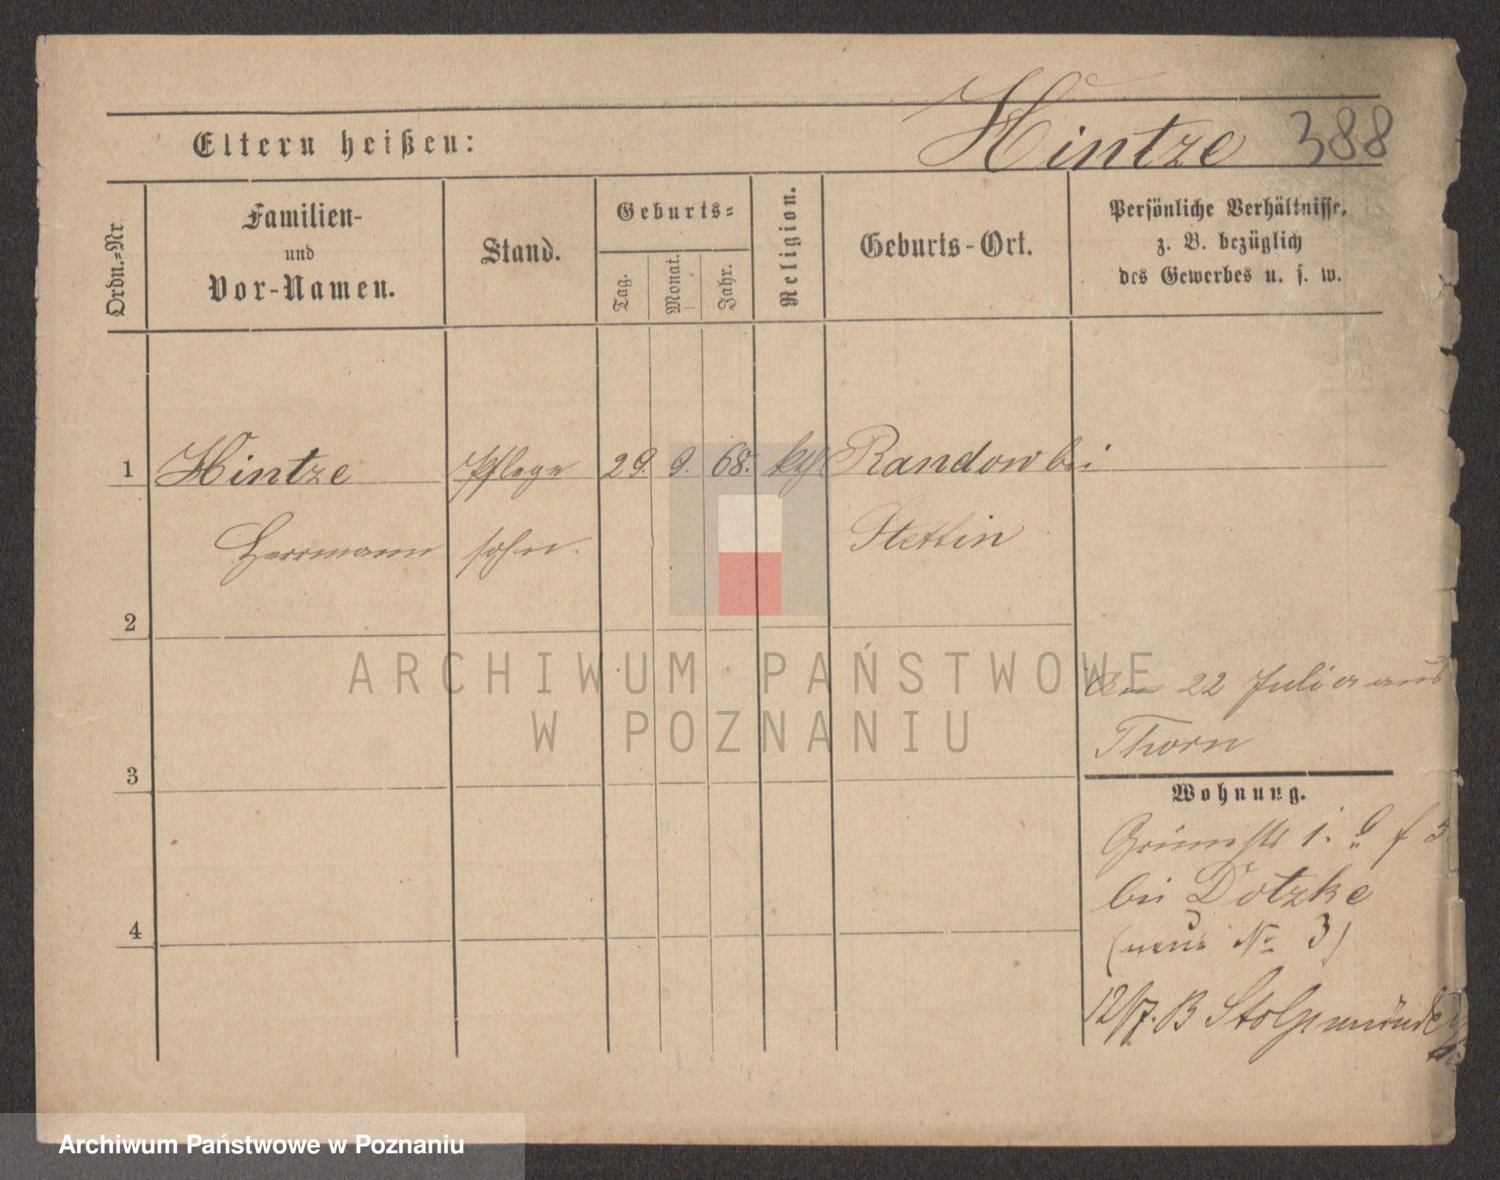 Hintze 388
Eltern heißen:
Ordn.=Nr
Familien-
und
Vor-Namen.
Stand.
Geburts=
Tag.
Monat.
Jahr.
Religion.
Geburts-Ort.
Persönliche Verhältnisse,
z. B. bezüglich
des Gewerbes u. s. w.
1 Hintze Pflege 29. 9. 68. Randow bei
Herrmann sohn. Stettin
2
ARCHIWUM PAŃSTWOWE
W POZNANIU
22 Juli aus
Thorn
3
Wohnung.
bei Dotzke
4
(neue No 3)
12/7. B Stolpmünde
Archiwum Państwowe w Poznaniu